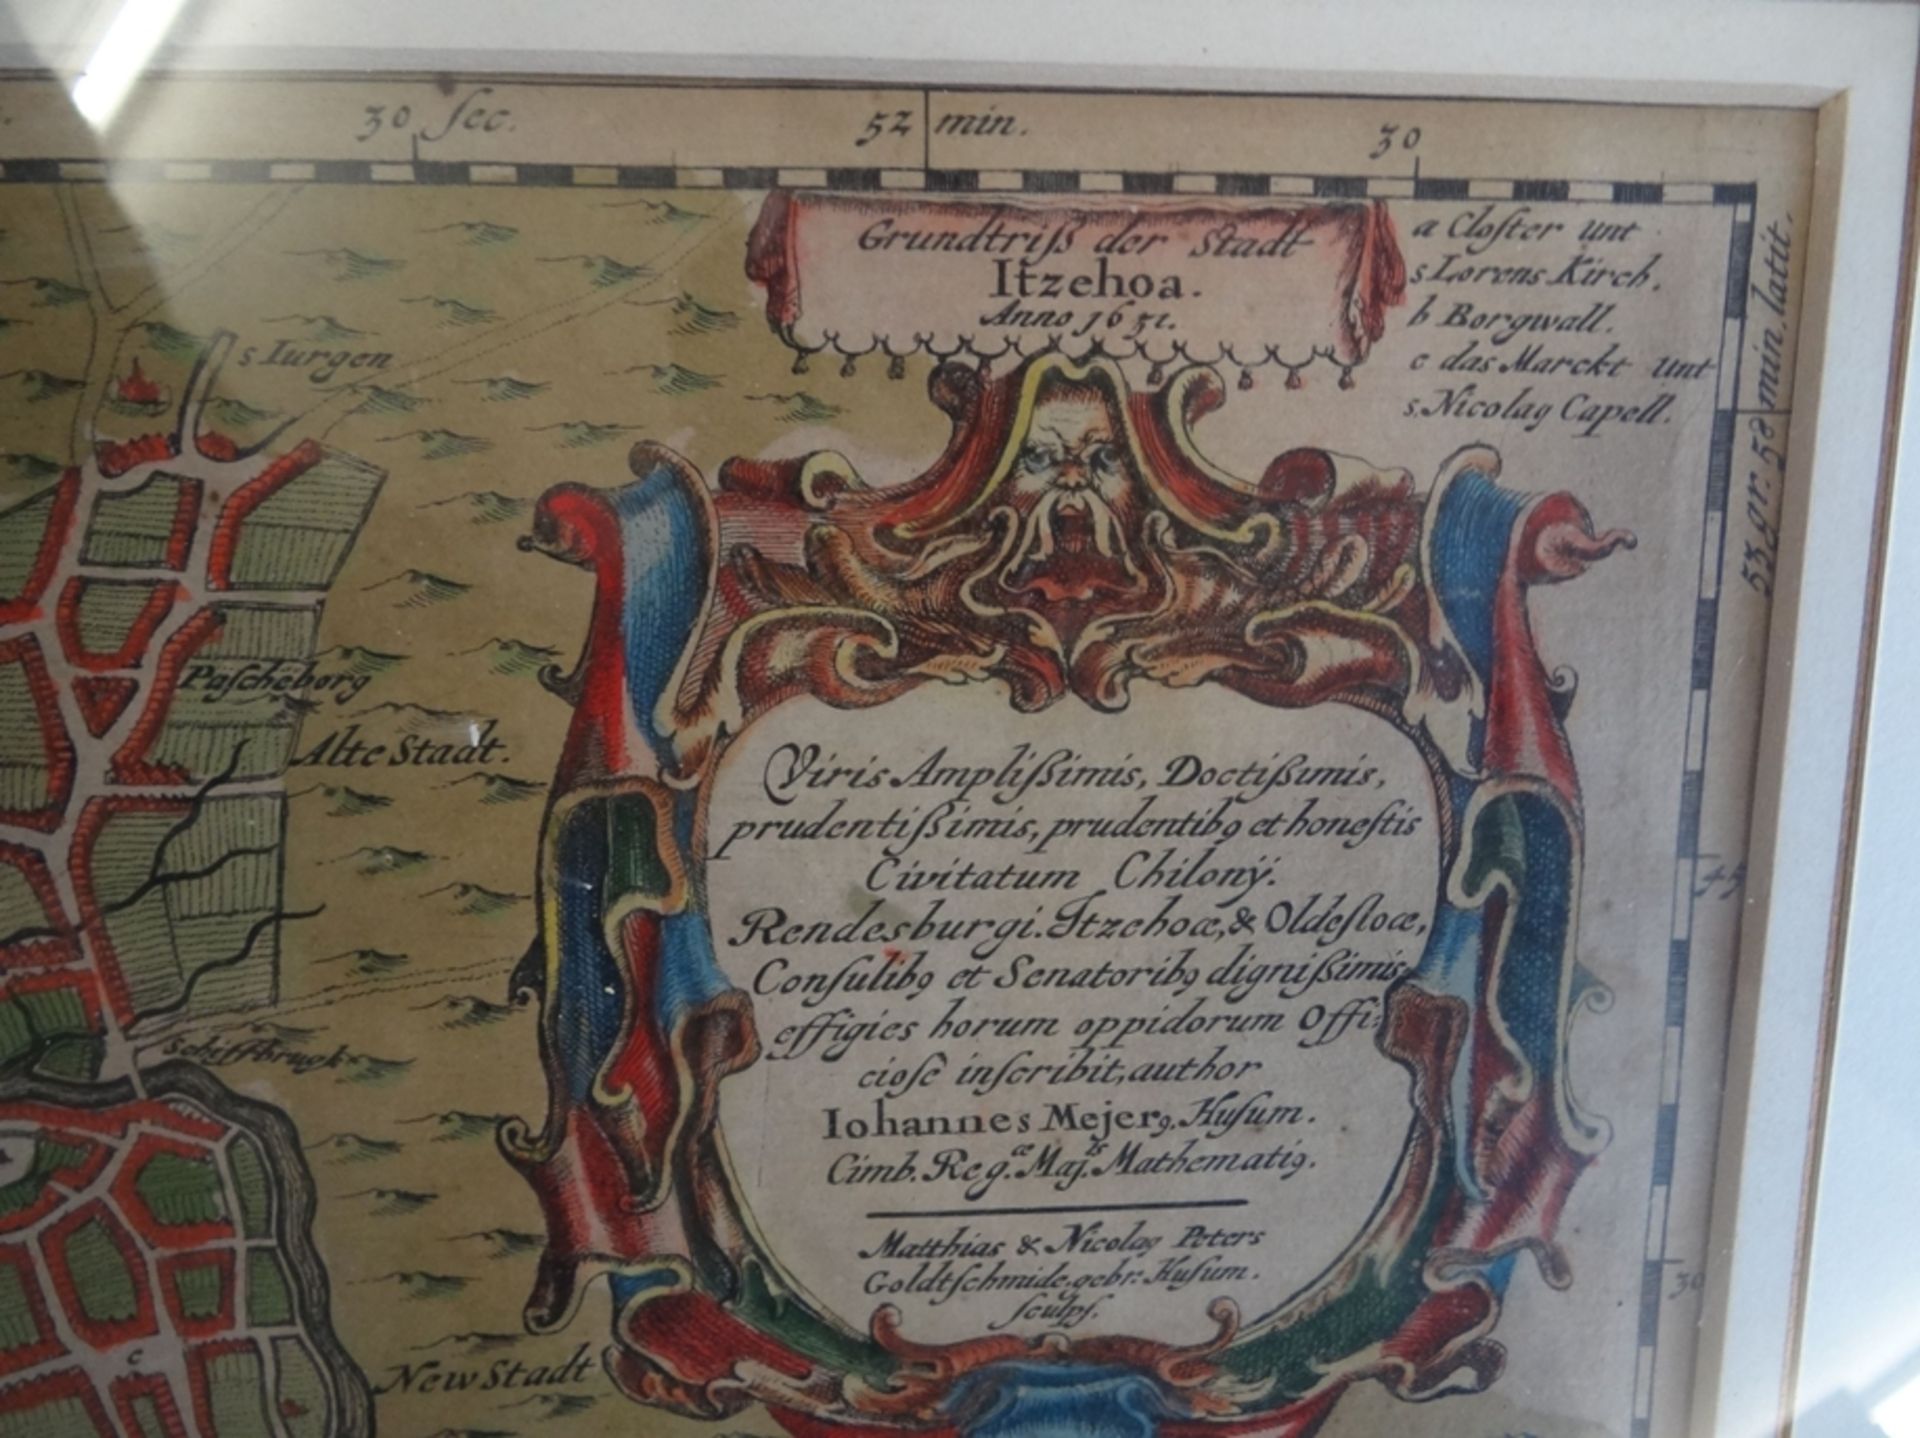 30 ſec.
52 min.
30
Grundtriß der Stadt
Itzehoa.
Anno 1651.
a Cloſter unt
s Lorens Kirch.
b Borgwall.
c das Marckt unt
s. Nicolaꝰ Capell.
53 gr. 58 min. latit.
45
30
s Iurgen
Paſcheborg
Alte Stadt.
Schiffbrugk
New Stadt
c
Viris Ampliſsimis, Doctiſsimis,
prudentiſsimis, prudentibꝰ et honeſtis
Civitatum Chilonÿ.
Rendesburgi. Itzehoæ, & Oldeſloæ,
Conſulibꝰ et Senatoribꝰ digniſsimis
effigies horum oppidorum Offi:
cioſè inſcribit, author
Iohannes Mejerꝰ. Huſum.
Cimb. Reg.æ Maj.ts Mathematiꝰ.
Matthias & Nicolaꝰ Peters
Goldtſchmide. gebr: Huſum.
ſculpſ.